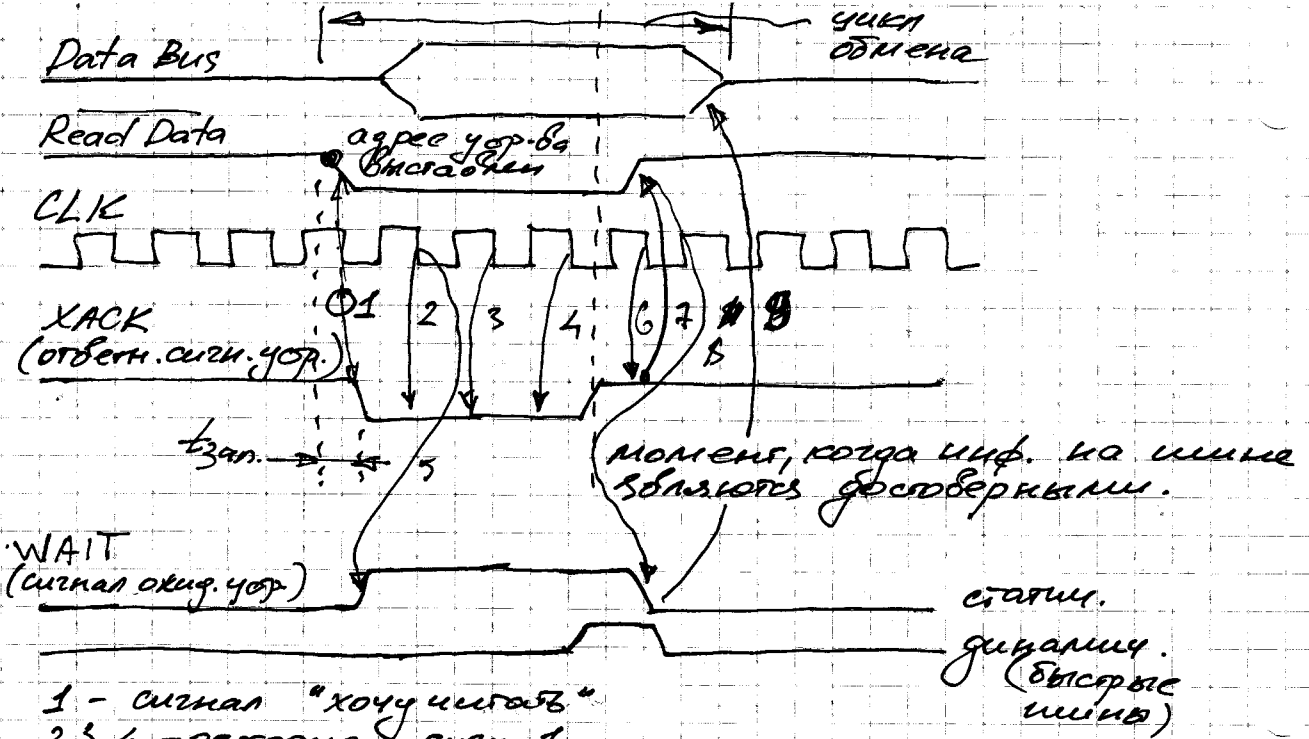 цикл
обмена
Data Bus
Read Data
адрес устр-ва
выставлен
CLK
1 2 3 4 6 7 8 9
XACK
(ответн. сигн. устр.)
tзап.
5
момент, когда инф. на шине
являются достоверными.
WAIT
(сигнал ожид. устр.)
статич.
динамич.
(быстрые
шины)
1 - сигнал "хочу читать"
2 3 4 -